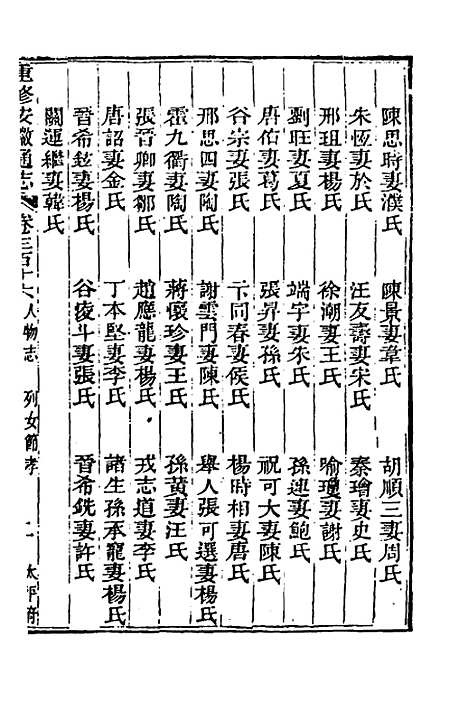 陳思時妻濮氏 陳景妻韋氏 胡順三妻周氏
朱恆妻於氏 汪友壽妻宋氏 秦璯妻史氏
邢珇妻楊氏 徐潮妻王氏 喻瓊妻謝氏
劉旺妻夏氏 端宇妻朱氏 孫連妻鮑氏
唐佑妻葛氏 張昇妻孫氏 祝可大妻陳氏
谷宗妻張氏 卞同春妻侯氏 楊時相妻唐氏
邢思四妻陶氏 謝雲門妻陳氏 舉人張可選妻楊氏
霍九衢妻陶氏 蔣懷珍妻王氏 孫黃妻汪氏
張晉卿妻鄒氏 趙應龍妻楊氏 戎志道妻李氏
唐詔妻金氏 丁本堅妻李氏 諸生孫承寵妻楊氏
晉希鉉妻楊氏 谷陵斗妻張氏 晉希銑妻許氏
關運繼妻韓氏
重修安徽通志 卷三百十六 人物志 列女節孝 二 太平府